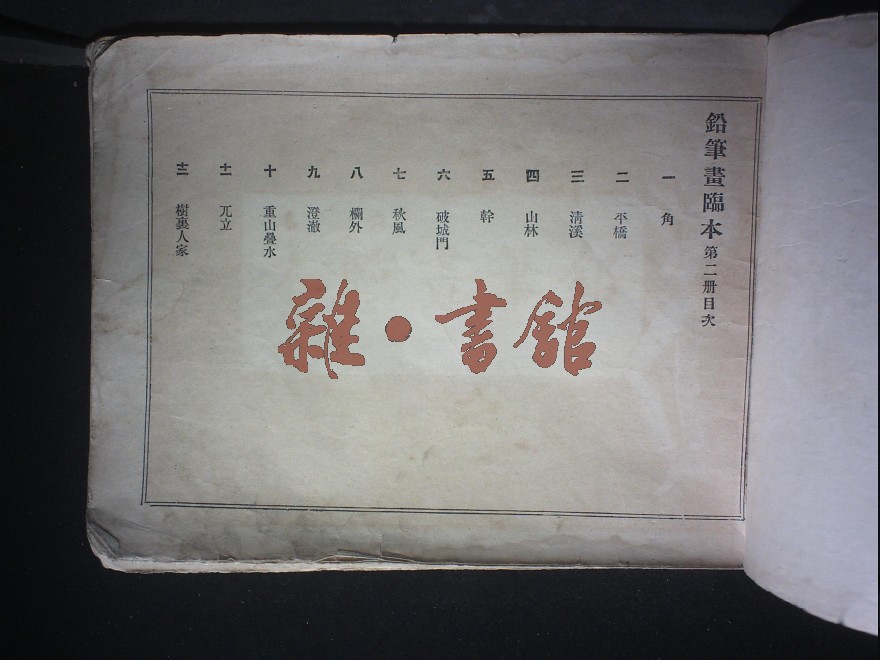 鉛筆畫臨本第二册目次
一 角
二 平橋
三 淸溪
四 山林
五 幹
六 破城門
七 秋風
八 欄外
九 澄澈
十 重山疊水
十一 兀立
十二 樹裏人家
雜·書館